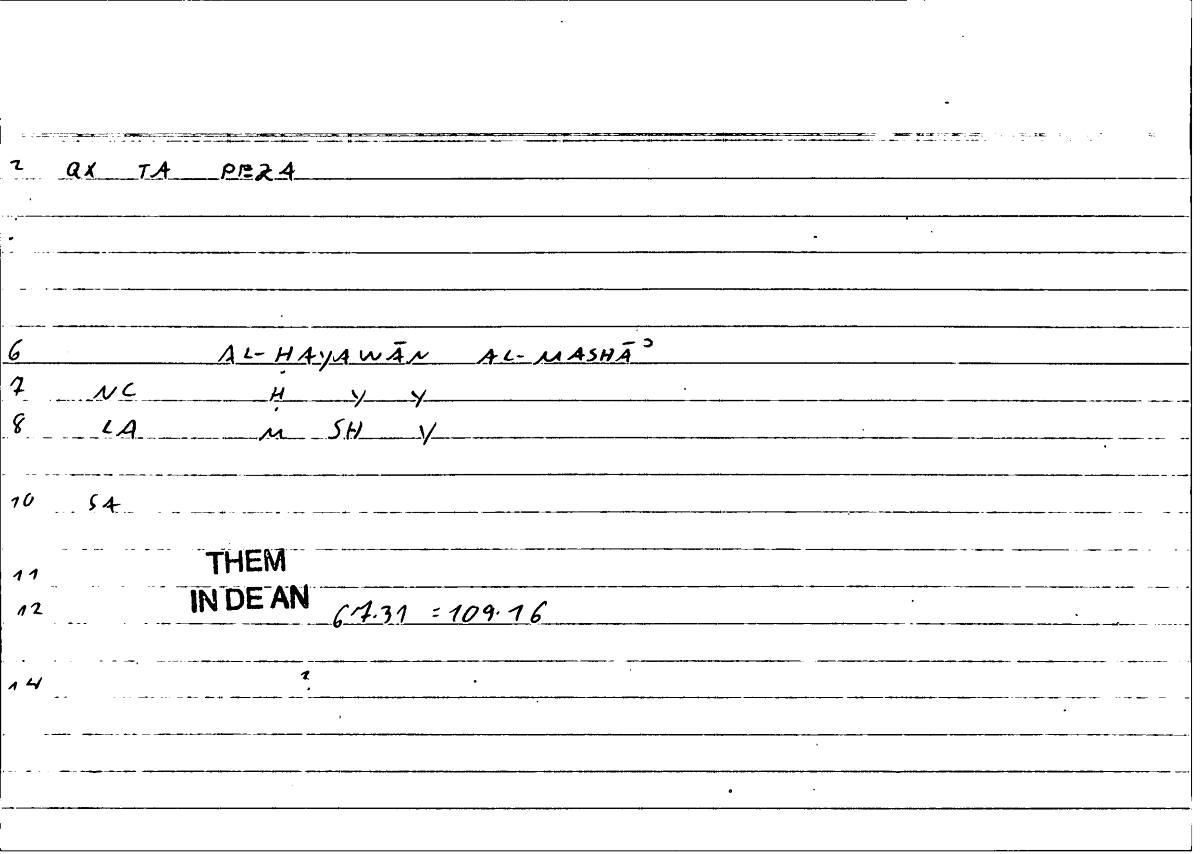 2 QX TA PEZA
6 AL-ḤAYAWĀN AL-MASHĀʾ
7 NC Ḥ Y Y
8 LA M SH Y
10 SA
11 THEM
12 IN DE AN 67.31 = 109.16
14 ?